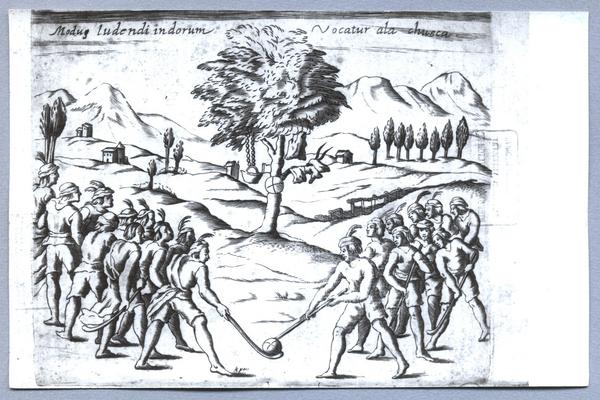 Modus ludendi indorum Vocatur ala chueca